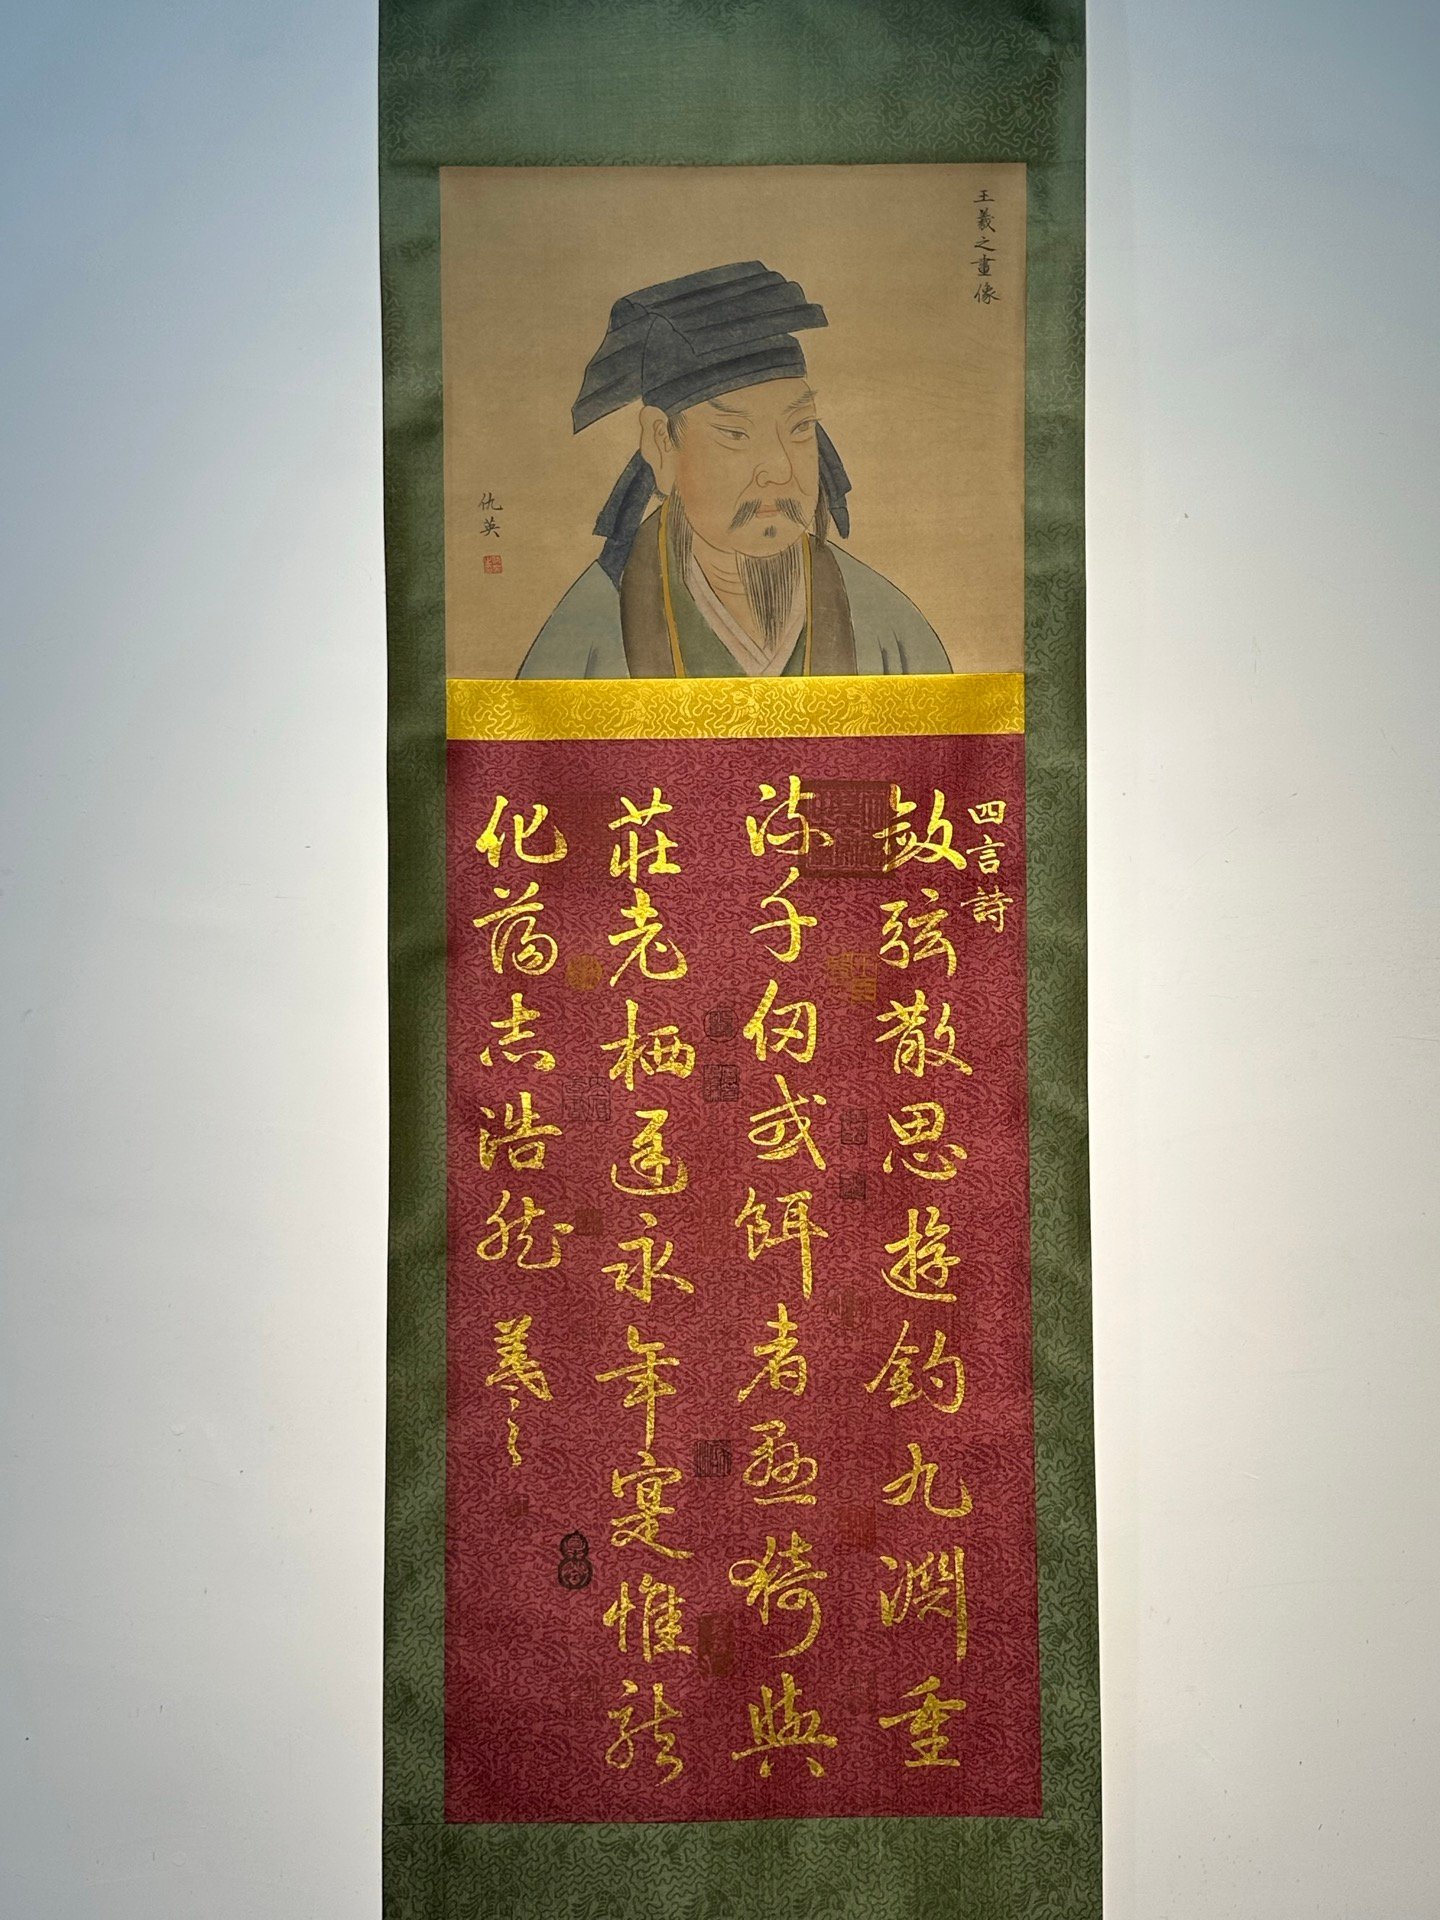 王羲之畫像
仇英
四言詩
敛弦散思遊釣九淵重
流千仞或餌者懸猗與
莊老栖遲永年寔惟龍
化蕩志浩然 羲之